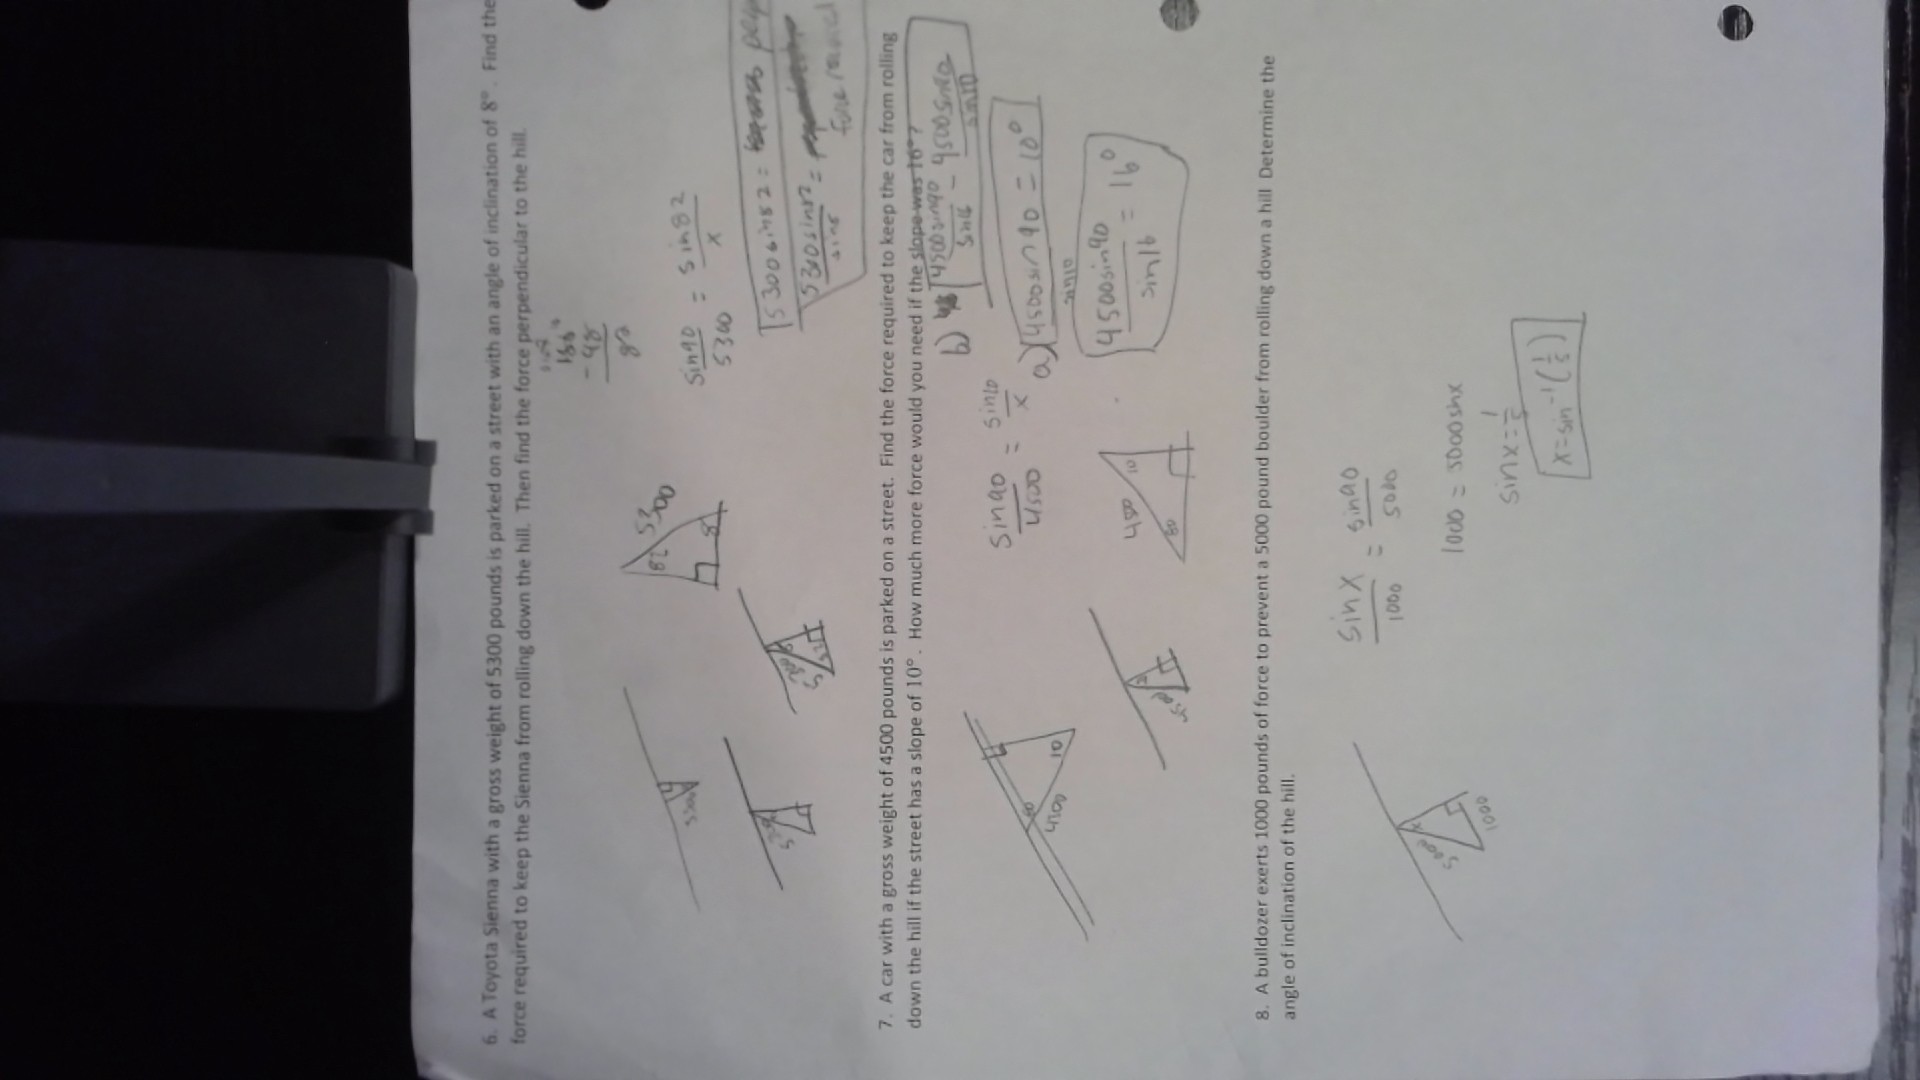 6. A Toyota Sienna with a gross weight of 5300 pounds is parked on a street with an angle of inclination of 8°. Find the
force required to keep the Sienna from rolling down the hill. Then find the force perpendicular to the hill.
- 98
82
82 5300
8
sin90 = sin82
5300 x
5300 sin82 =
5300 sin82 =
5300
7. A car with a gross weight of 4500 pounds is parked on a street. Find the force required to keep the car from rolling
down the hill if the street has a slope of 10°. How much more force would you need if the slope was 16°?
b) 4500sin90 - 4500sin90
sin16 sin10
sin90 = sin10
4500 x
a) 4500sin90 = 10°
sin10
80
10
4500
4500
10
80
4500sin90 = 16°
sin16
8. A bulldozer exerts 1000 pounds of force to prevent a 5000 pound boulder from rolling down a hill Determine the
angle of inclination of the hill.
sinx = sin90
1000 5000
5000 x
1000
1000 = 5000sinx
sinx = 1/5
x = sin⁻¹(1/5)